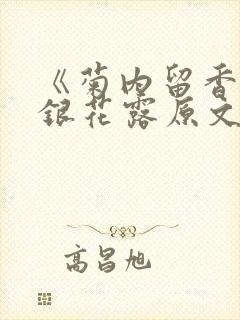 《菊内留香
銀花露原文
高昌旭